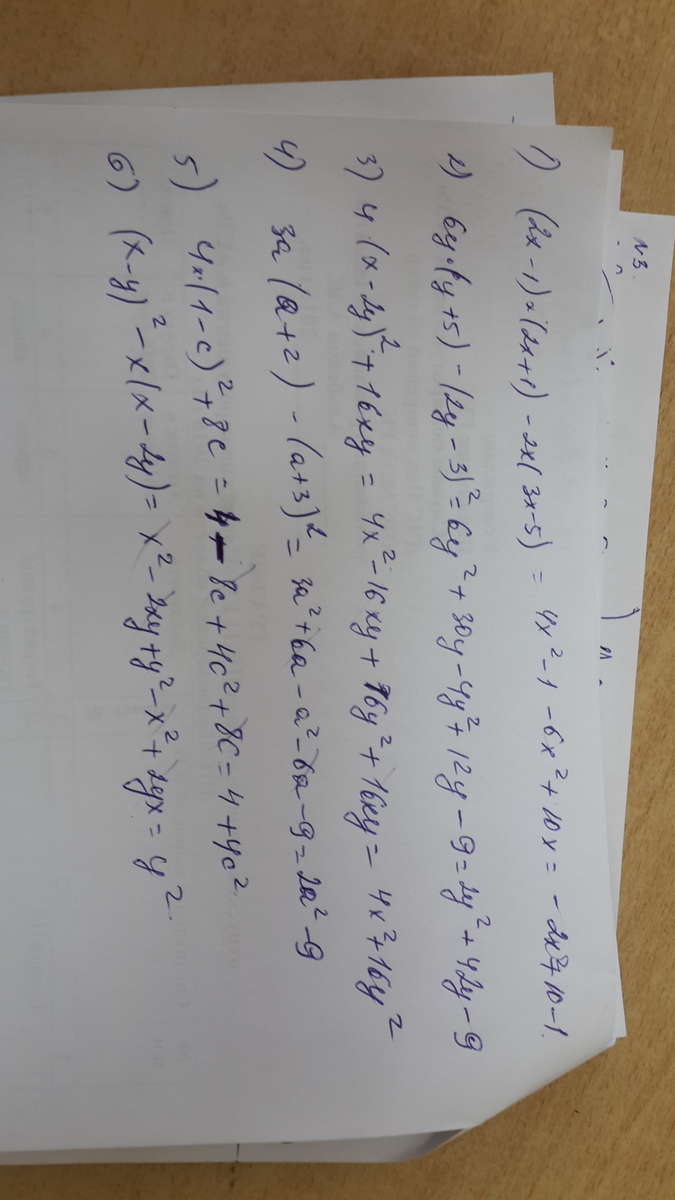 №3.
1) (2x-1)×(2x+1)-2x(3x-5) = 4x²-1-6x²+10x = -2x²+10-1.
2) 6y·(y+5)-(2y-3)²=6y²+30y-4y²+12y-9=2y²+42y-9
3) 4(x-2y)²+16xy = 4x²-16xy+16y²+16xy= 4x²+16y²
4) 3a(a+2)-(a+3)²= 3a²+6a-a²-6a-9=2a²-9
5) 4×(1-c)²+8c = 4-8c+4c²+8c=4+4c²
6) (x-y)²-x(x-2y)= x²-2xy+y²-x²+2yx= y².